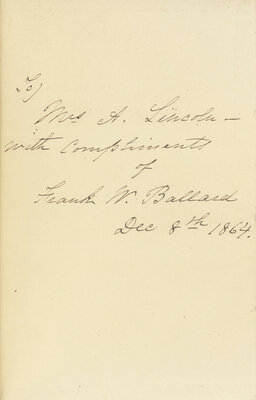 To
Mrs A. Lincoln —
with Compliments
of
Frank W. Ballard
Dec 8th 1864.